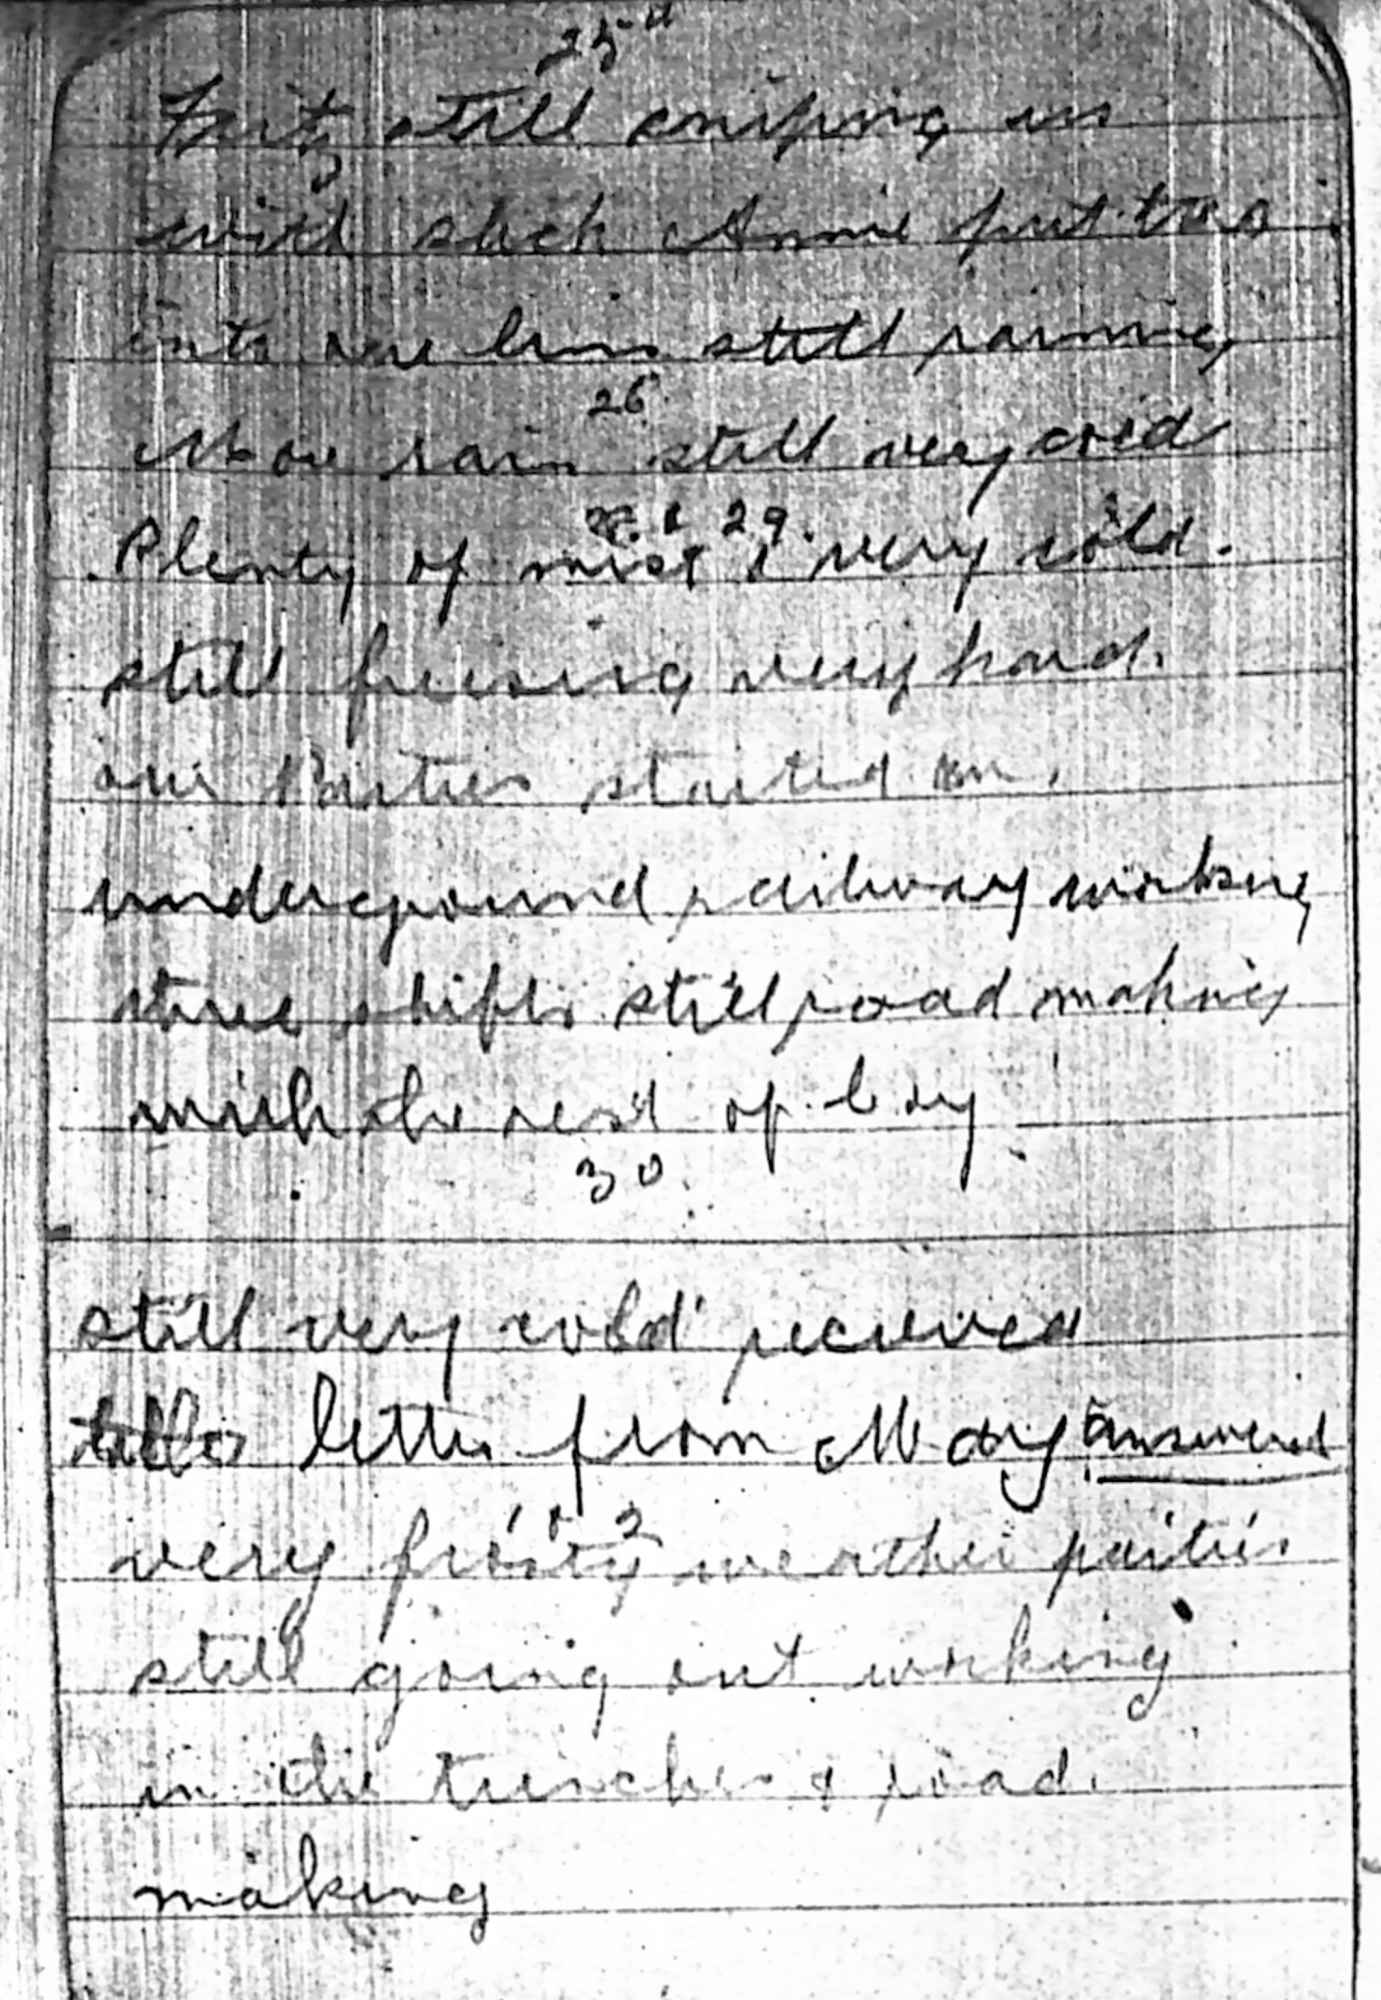 25th
Fritz still sniping us
with slick Annie put two
into our lines still raining
26
More rain still very cold
28 & 29.
Plenty of mist & very cold.
still freesing very hard.
our Parties started on.
underground railway working
three shifts still road making
with the rest of Coy
30.
still very cold recieved
letter from May answered
1 & 2
very frosty weather parties
still going out working
in the trenches & road
making